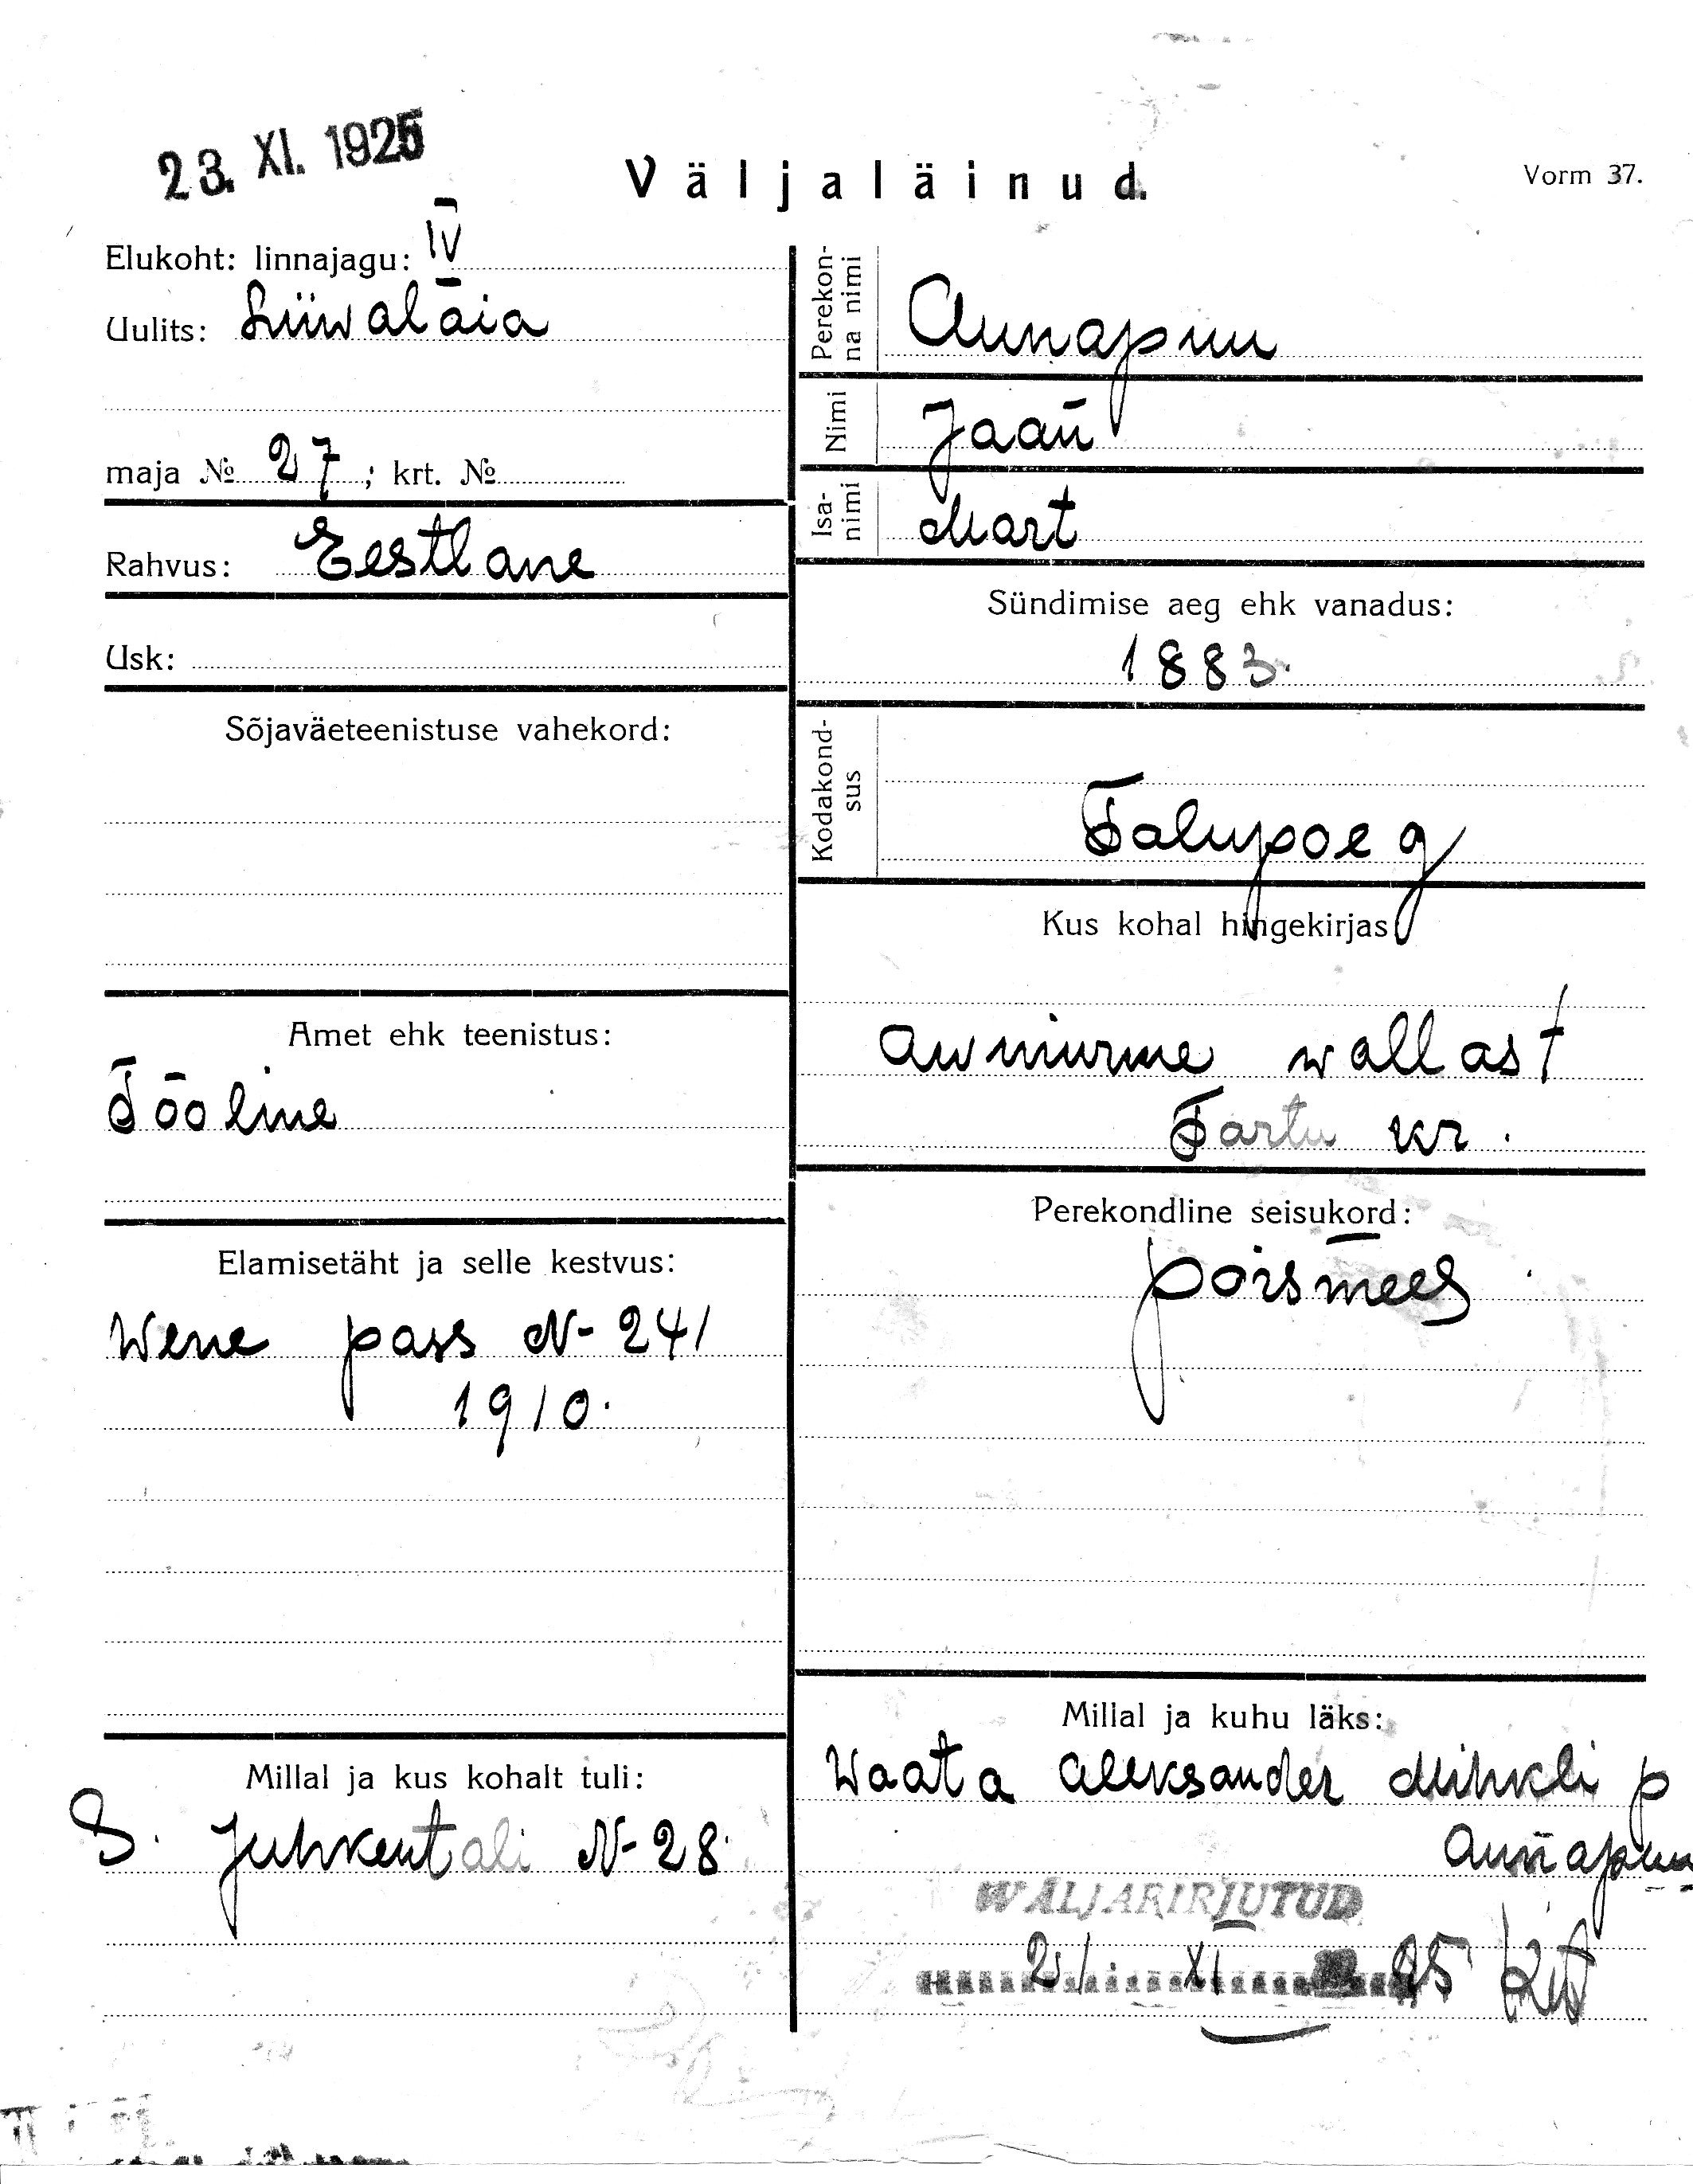 23. XI. 1925
Väljaläinud.
Vorm 37.
Elukoht: linnajagu: IV
Uulits: Liiwalaia
maja № 27; krt. №
Rahvus: Eestlane
Usk:
Sõjaväeteenistuse vahekord:
Amet ehk teenistus:
Tööline
Elamisetäht ja selle kestvus:
Wene pass N- 241
1910.
Millal ja kus kohalt tuli:
S. Juhkentali N- 28.
Perekon-
na nimi
Aunapuu
Nimi
Jaan
Isa-
nimi
Mart
Sündimise aeg ehk vanadus:
1883.
Kodakond-
sus
Talupoeg
Kus kohal hingekirjas
Awinurme wallast
Tartu kr.
Perekondline seisukord:
poismees
Millal ja kuhu läks:
Waata Aleksander Mihkli p
Aunapuu
WÄLJAKIRJUTUD
21. XI 25